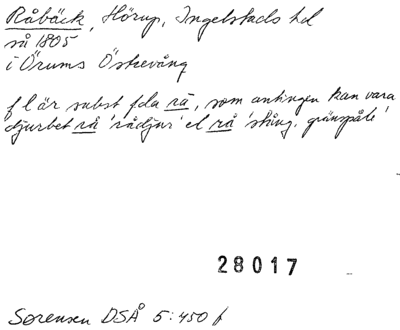 Råbäck, Hörup, Ingelstads hd
så 1805
i Örums Östrevång
f l är subst fda rå, som antingen kan vara
djurbet rå 'rådjur' el rå 'stång, gränspåle'
28017
Sørensen DSÅ 5:450 f